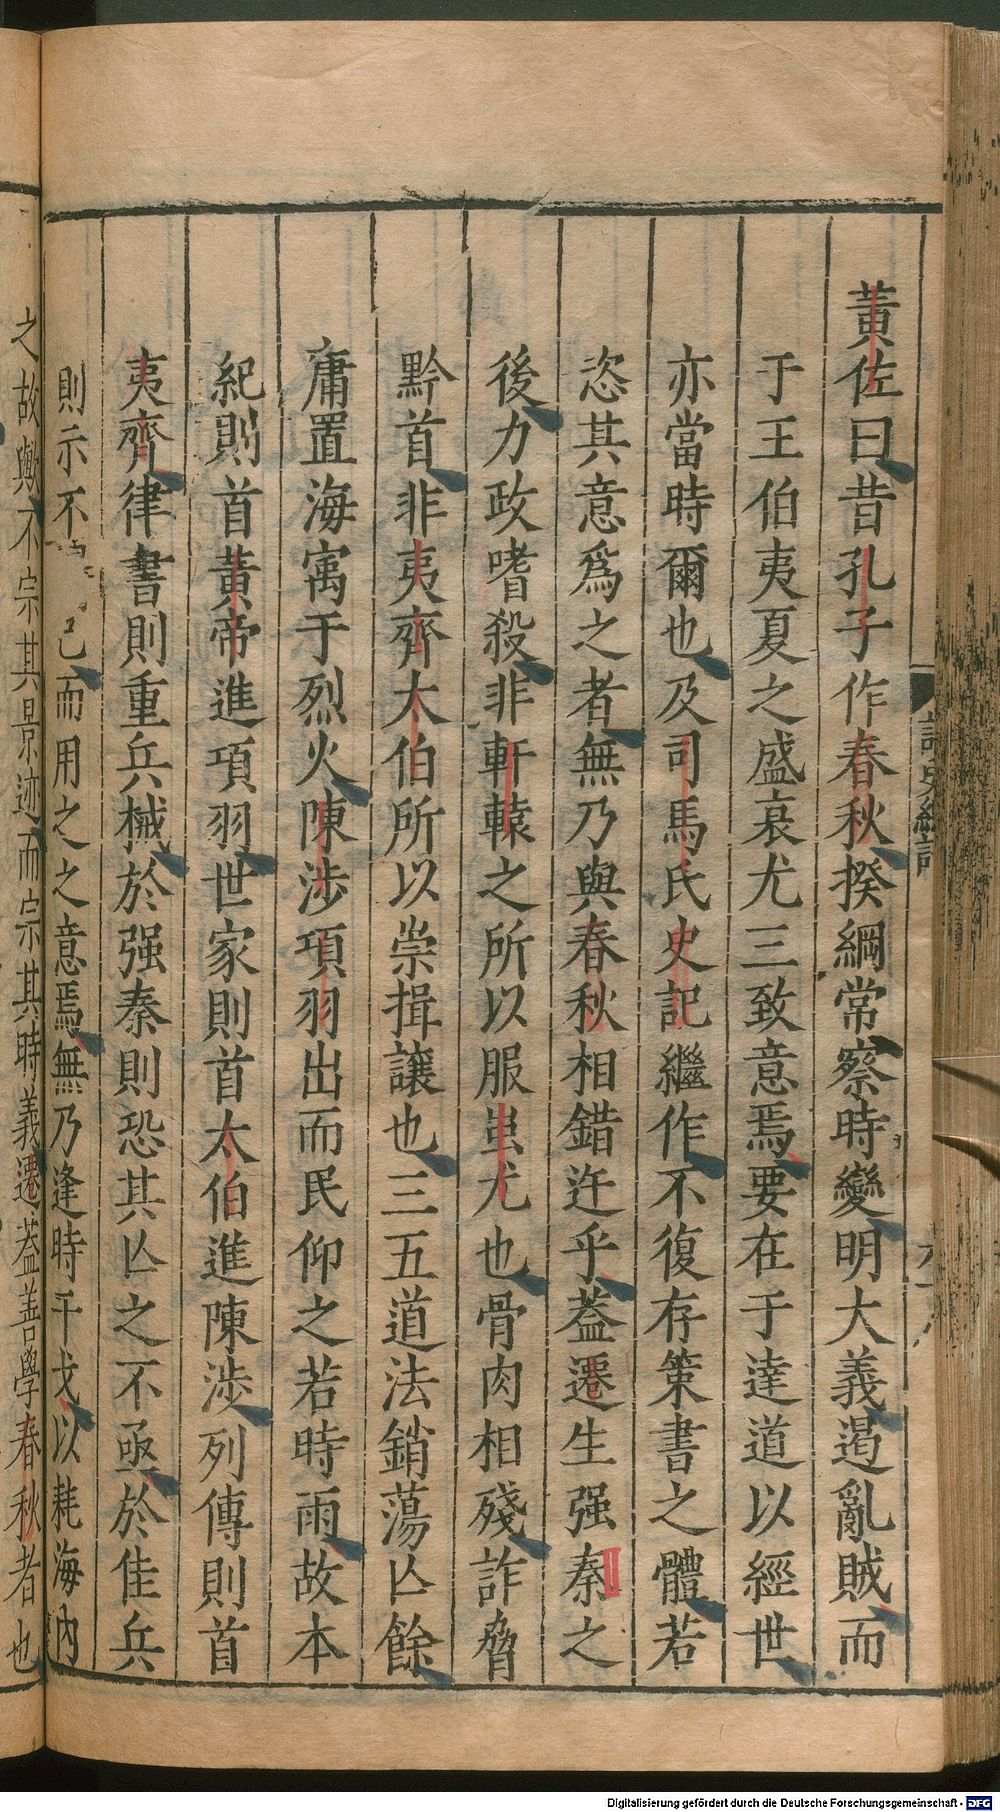 黃佐曰昔孔子作春秋揆綱常察時變明大義遏亂賊而
于王伯夷夏之盛衰尤三致意焉要在于達道以經世
亦當時爾也及司馬氏史記繼作不復存策書之體若
恣其意爲之者無乃與春秋相錯迕乎葢遷生强秦之
後力政嗜殺非軒轅之所以服蚩尤也骨肉相殘詐脅
黔首非夷齊太伯所以崇揖讓也三五道法銷蕩亾餘
庸置海寓于烈火陳涉項羽出而民仰之若時雨故本
紀則首黃帝進項羽世家則首太伯進陳涉列傳則首
夷齊律書則重兵械於强秦則恐其亾之不亟於佳兵
則示不 已而用之之意焉無乃逢時干戈以耗海內
之故與不宗其景迹而宗其時義遷葢善學春秋者也
Digitalisierung gefördert durch die Deutsche Forschungsgemeinschaft - DFG